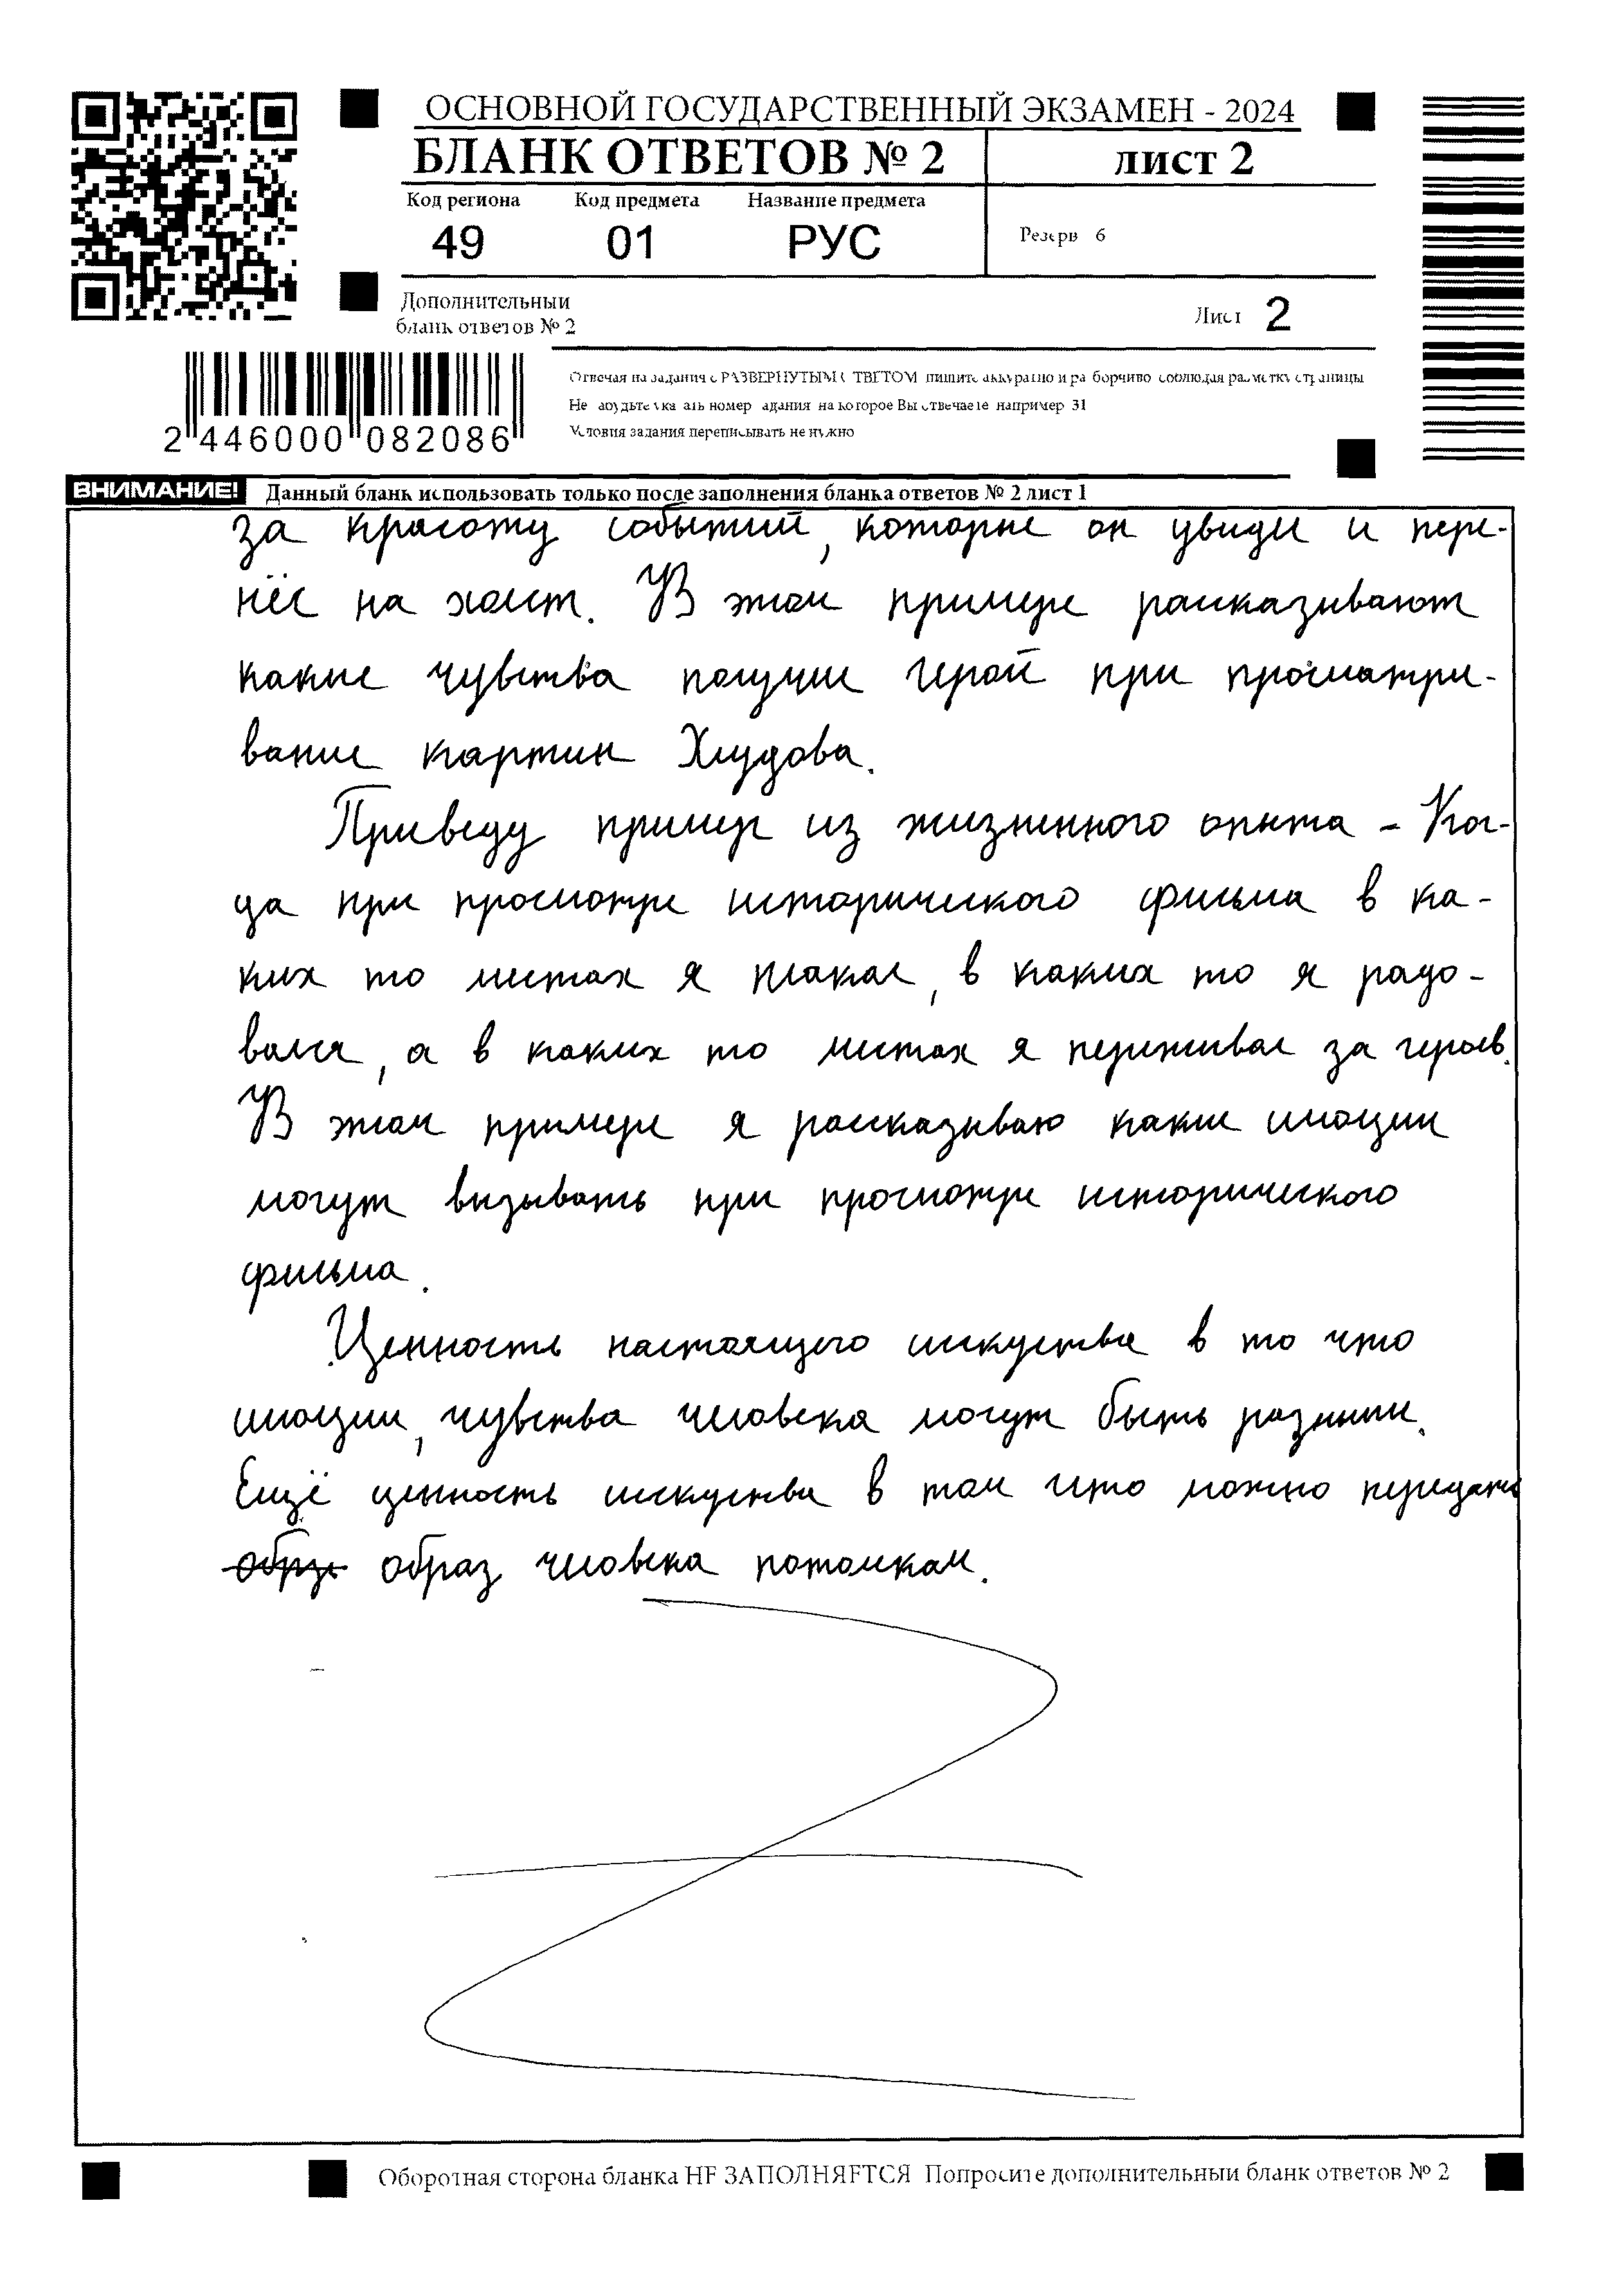 ОСНОВНОЙ ГОСУДАРСТВЕННЫЙ ЭКЗАМЕН - 2024
БЛАНК ОТВЕТОВ № 2
лист 2
Код региона
Код предмета
Название предмета
49
01
РУС
Резерв 6
Дополнительный
бланк ответов № 2
Лист 2
2 446000 082086
Отвечая на задания с РАЗВЕРНУТЫМ ОТВЕТОМ пишите аккуратно и разборчиво соблюдая разметку страницы
Не забудьте указать номер задания на которое Вы отвечаете например 31
Условия задания переписывать не нужно
ВНИМАНИЕ! Данный бланк использовать только после заполнения бланка ответов № 2 лист 1
за красоту событий, которые он увидел и пере-
нёс на холст. В этом примере расказывают
какие чувства получил герой при просматри-
вание картин Хлудова.
Приведу пример из жизненного опыта - Ког-
да при просмотре исторического фильма в ка-
ких то местах я плакал, в каких то я радо-
вался, а в каких то местах я переживал за героев.
В этом примере я рассказываю какие имоции
могут вызывать при просмотре исторического
фильма.
Ценность настоящего искуства в то что
имоции, чувства человека могут быть разными.
Ещё ценность искуства в том что можно передать
образ человека потомкам.
Оборотная сторона бланка НЕ ЗАПОЛНЯЕТСЯ Попросите дополнительный бланк ответов № 2